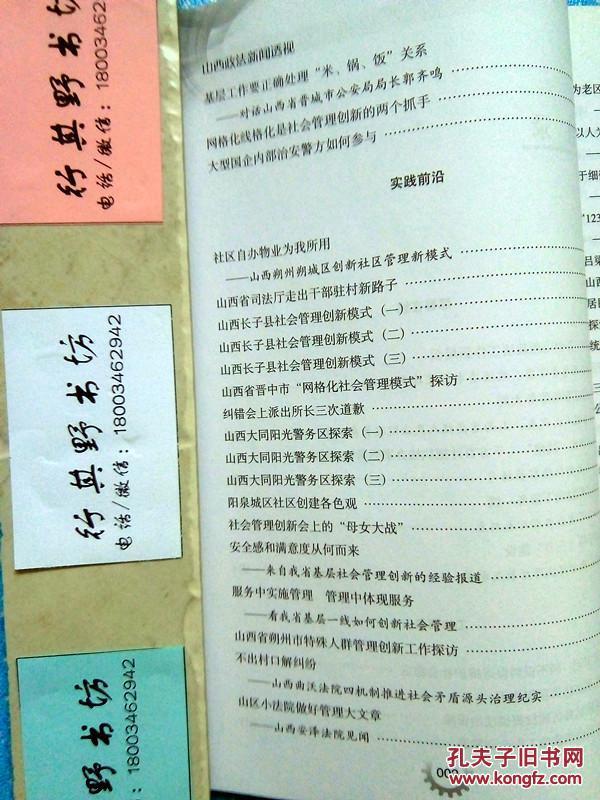 山西政法新闻透视
基层工作要正确处理“米、锅、饭”关系
——对话山西省晋城市公安局局长郭齐鸣
网格化线格化是社会管理创新的两个抓手
大型国企内部治安警方如何参与
实践前沿
社区自办物业为我所用
——山西朔州朔城区创新社区管理新模式
山西省司法厅走出干部驻村新路子
山西长子县社会管理创新模式（一）
山西长子县社会管理创新模式（二）
山西长子县社会管理创新模式（三）
山西省晋中市“网格化社会管理模式”探访
纠错会上派出所长三次道歉
山西大同阳光警务区探索（一）
山西大同阳光警务区探索（二）
山西大同阳光警务区探索（三）
阳泉城区社区创建各色观
社会管理创新会上的“母女大战”
安全感和满意度从何而来
——来自我省基层社会管理创新的经验报道
服务中实施管理 管理中体现服务
——看我省基层一线如何创新社会管理
山西省朔州市特殊人群管理创新工作探访
不出村口解纠纷
——山西曲沃法院四机制推进社会矛盾源头治理纪实
山区小法院做好管理大文章
——山西安泽法院见闻
为老区
以人为
于细微
“123
吕梁
山西
居民
探
统
行其野书坊
电话/微信：18003462942
行其野书坊
电话/微信：18003462942
野书坊
微信：18003462942
孔夫子旧书网
www.kongfz.com